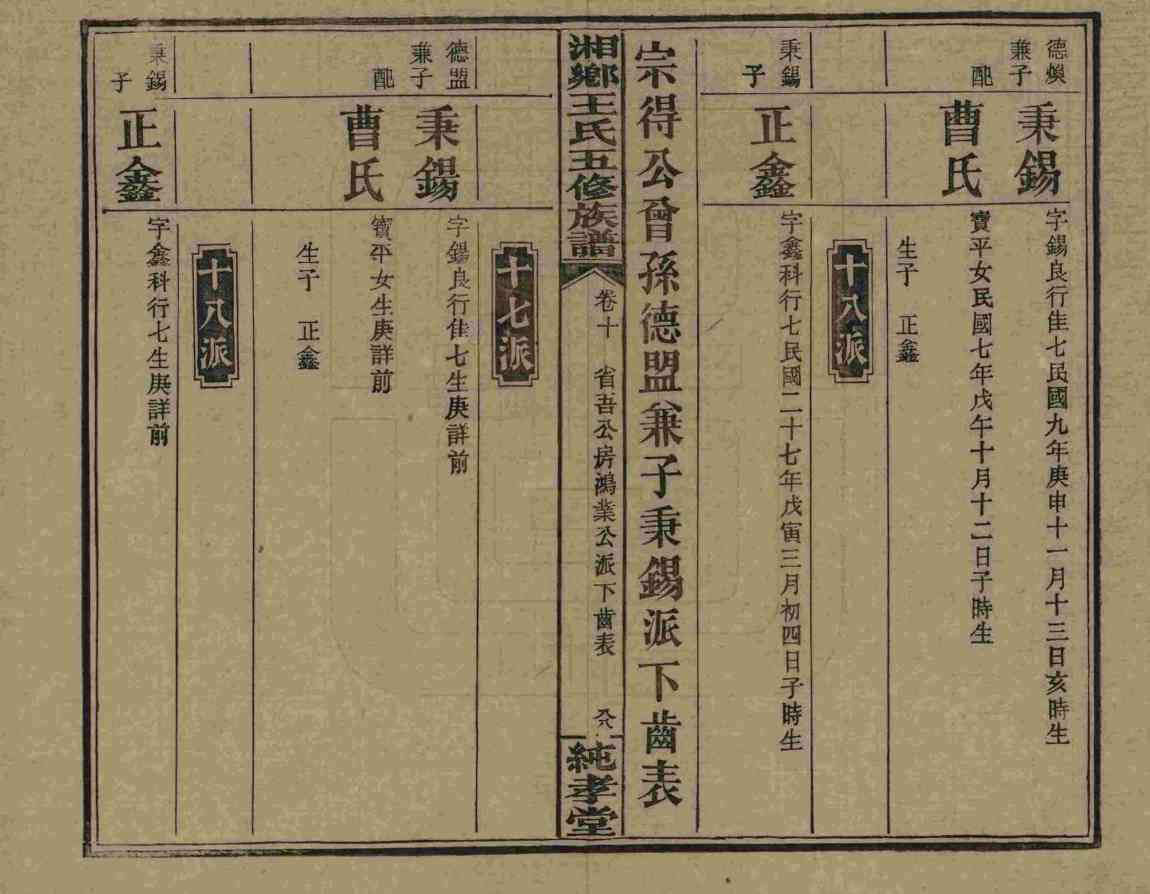 德煥
兼子
秉錫
字錫良行佳七民國九年庚申十一月十三日亥時生
配
曹氏
寶平女民國七年戊午十月十二日子時生
生子 正鑫
十八派
秉錫
子
正鑫
字鑫科行七民國二十七年戊寅三月初四日子時生
宗得公曾孫德盟兼子秉錫派下齒表
湘鄉王氏五修族譜
卷十 省吾公房鴻業公派下齒表
純孝堂
十七派
德盟
兼子
秉錫
字錫良行佳七生庚詳前
配
曹氏
寶平女生庚詳前
生子 正鑫
十八派
秉錫
子
正鑫
字鑫科行七生庚詳前